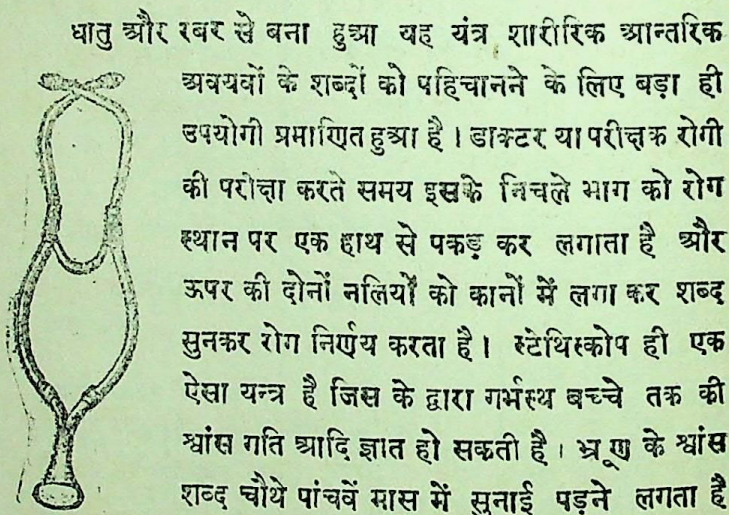 धातु और रबर से बना हुआ यह यंत्र शारीरिक आन्तरिक
अवयवों के शब्दों को पहिचानने के लिए बड़ा ही
उपयोगी प्रमाणित हुआ है । डाक्टर या परीक्षक रोगी
की परीक्षा करते समय इसके निचले भाग को रोग
स्थान पर एक हाथ से पकड़ कर लगाता है और
ऊपर की दोनों नलियों को कानों में लगा कर शब्द
सुनकर रोग निर्णय करता है । स्टेथिस्कोप ही एक
ऐसा यन्त्र है जिस के द्वारा गर्भस्थ बच्चे तक की
श्वांस गति आदि ज्ञात हो सकती है । भ्रूण के श्वांस
शब्द चौथे पांचवें मास में सुनाई पड़ने लगता है